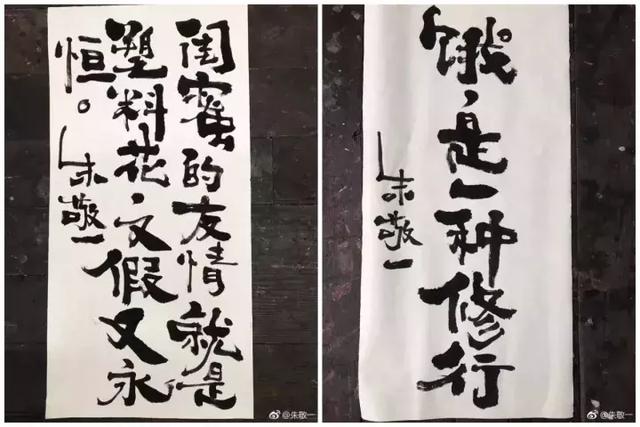 闺蜜的友情就是
塑料花,又假又永
恒。
朱敬一
@朱敬一
饿,是一种修行
朱敬一
@朱敬一